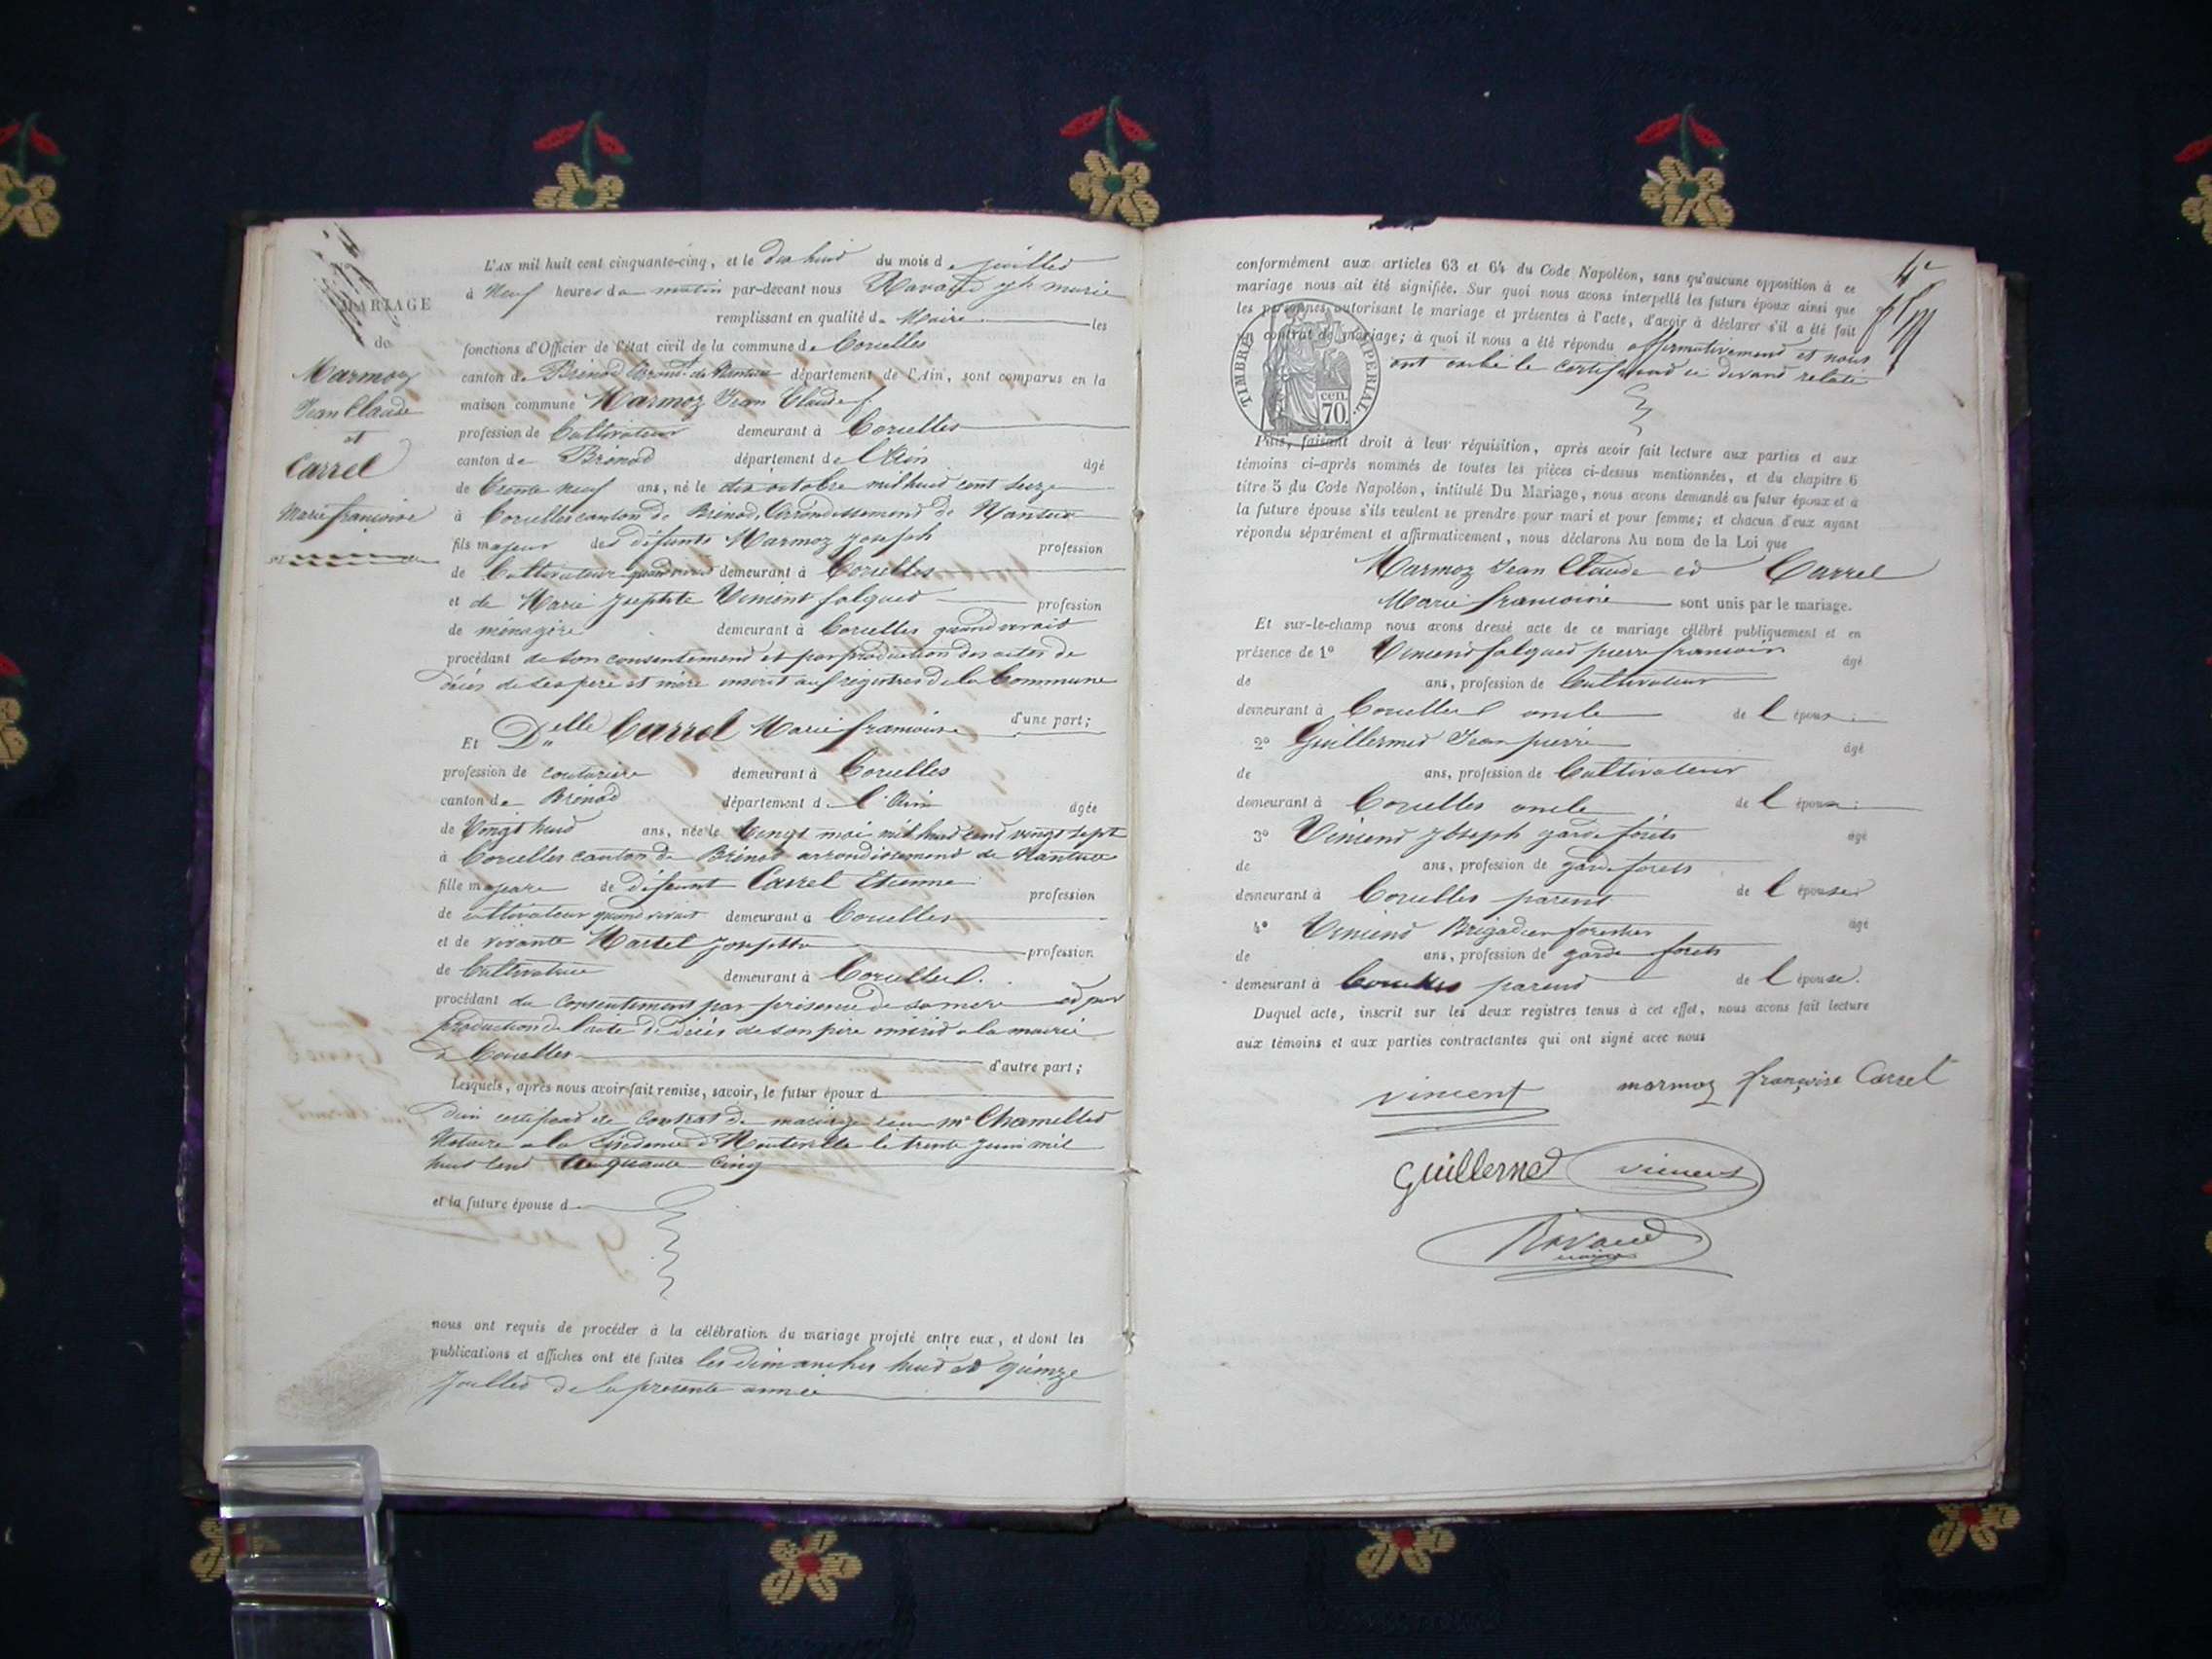 MARIAGE
de
Marmoz
Jean Claude
et
Carrel
Marie françoise
L'AN mil huit cent cinquante-cinq, et le dix huit du mois de juillet
à Neuf heures du matin par-devant nous Ravaud jh marie
remplissant en qualité de Maire les
fonctions d'Officier de l'état civil de la commune de Corcelles
canton de Brénod Arront. de Nantua département de l'Ain, sont comparus en la
maison commune Marmoz Jean Claude
profession de Cultivateur demeurant à Corcelles
canton de Brénod département de l'Ain âgé
de trente neuf ans, né le dix octobre mil huit cent seize
à Corcelles canton de Brénod, Arrondissement de Nantua
fils majeur des défunts Marmoz joseph profession
de Cultivateur quand vivait demeurant à Corcelles
et de Marie josephte Vincent falquet profession
de ménagère demeurant à Corcelles quand vivait
procédant de son consentement et par production des actes de
décès de ses père et mère inscrit aux registres de la Commune
d'une part;
Et Delle Carrel Marie françoise
profession de couturière demeurant à Corcelles
canton de Brénod département de l'Ain âgée
de Vingt huit ans, née le Vingt mai mil huit cent vingt sept
à Corcelles canton de Brénod arrondissement de Nantua
fille majeure de défunt Carrel Etienne profession
de cultivateur quand vivait demeurant à Corcelles
et de vivante Martel josephte profession
de Cultivatrice demeurant à Corcelles.
procédant du consentement par présence de sa mère et par
production de l'acte de décès de son père inscrit a la mairie
de Corcelles d'autre part;
Lesquels, après nous avoir fait remise, savoir, le futur époux d
d'un certificat de contrat de mariage reçu me Chamelled
Notaire a la résidence d'Hauteville le trente juin mil
huit cent cinquante cinq
et la future épouse d
nous ont requis de procéder à la célébration du mariage projeté entre eux, et dont les
publications et affiches ont été faites les dimanches huit et quinze
juillet de la presente année
4e
conformément aux articles 63 et 64 du Code Napoléon, sans qu'aucune opposition à ce
mariage nous ait été signifiée. Sur quoi nous avons interpellé les futurs époux ainsi que
les personnes autorisant le mariage et présentes à l'acte, d'avoir à déclarer s'il a été fait
un contrat de mariage; à quoi il nous a été répondu affirmativement et nous
ont exibé le certificat ci devant relaté
TIMBRE IMPERIAL.
70. cen.
Puis, faisant droit à leur réquisition, après avoir fait lecture aux parties et aux
témoins ci-après nommés de toutes les pièces ci-dessus mentionnées, et du chapitre 6
titre 5 du Code Napoléon, intitulé Du Mariage, nous avons demandé au futur époux et à
la future épouse s'ils veulent se prendre pour mari et pour femme; et chacun d'eux ayant
répondu séparément et affirmativement, nous déclarons Au nom de la Loi que
Marmoz Jean Claude et Carrel
Marie françoise sont unis par le mariage.
Et sur-le-champ nous avons dressé acte de ce mariage célébré publiquement et en
présence de 1º Vincent falquet pierre françois âgé
de ans, profession de Cultivateur
demeurant à Corcelles oncle de l'époux:
2º Guillermet Jean pierre âgé
de ans, profession de Cultivateur
demeurant à Corcelles oncle de l'époux:
3º Vincent Joseph garde forêts âgé
de ans, profession de garde forêts
demeurant à Corcelles parent de l'épouse
4º Vincent Brigadier forestier âgé
de ans, profession de garde forets
demeurant à Corcelles parent de l'épouse.
Duquel acte, inscrit sur les deux registres tenus à cet effet, nous avons fait lecture
aux témoins et aux parties contractantes qui ont signé avec nous
vincent marmoz françoise Carrel
Guillermet vincent
Ravaud
maire